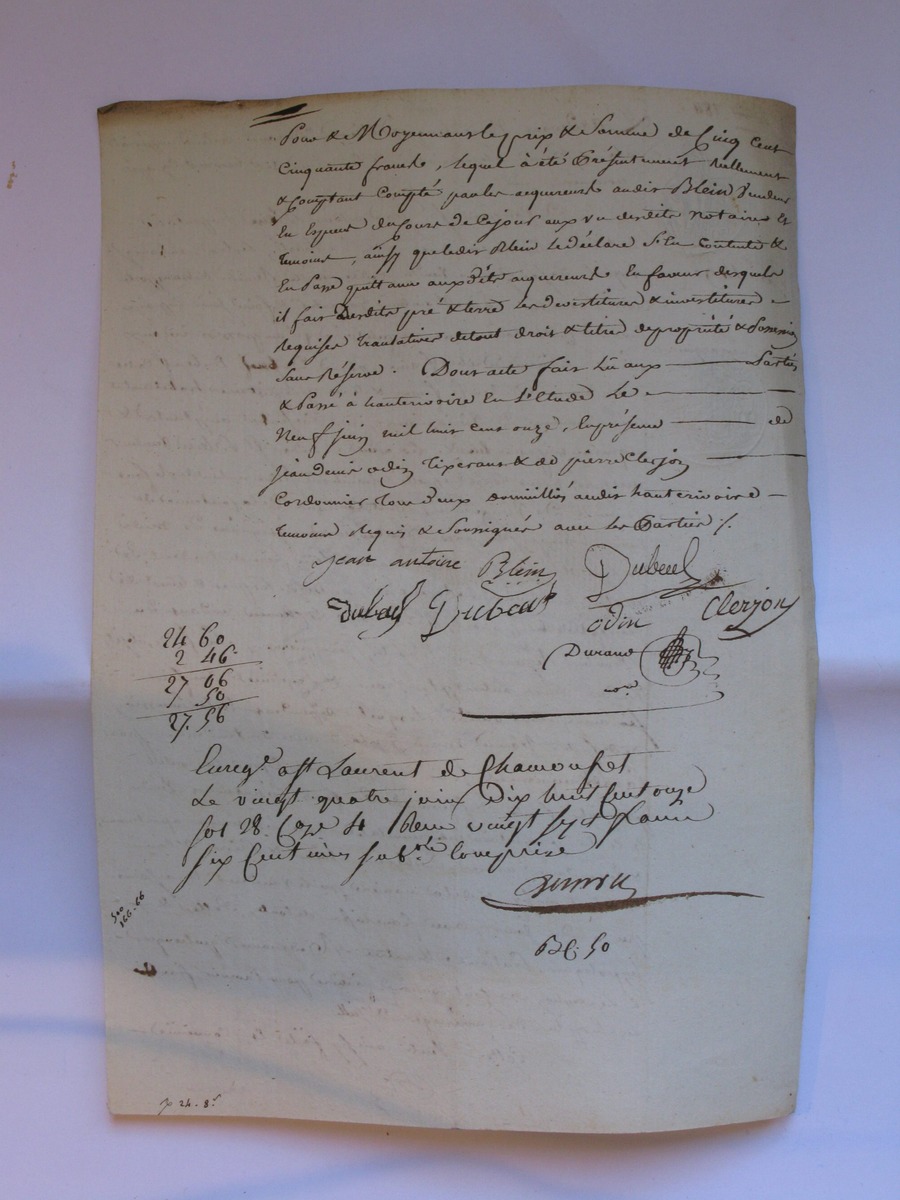 Pour & Moyennant le prix & Somme de Cinq cent
cinquante francs, lequel à été Présentement Réllement
& Comptant Compté par les acquereurs audit Blein Vendeur
En Especes du Cours de Ce jour aux vu desdits notaire Et
temoins, ainsy que ledit Blein le déclare S'En Contente &
En Passe quittance auxdits acquereurs En faveur desquels
il fait desdits pré & terre les devestitures & investitures
requises translatives de tout droit & titre de propriété &
Sans Réserve. Dont acte fait lu aux Parties
& Passé à hauterivoire En l'Etude Le
Neuf juin mil huit cent onze, En présence de
jean denis odin tixerant & de pierre Clerjon
Cordonnier tous deux domiciliés audit hauterivoire
temoins requis & Soussignés avec les Parties ./.
jean antoine Blein Dubeuf
Dubeuf Dubeuf odin Clerjon
Durand
nre
24 60
2 46
27 06
. 50
27. 56
Enregé. a St Laurent de Chamousset
Le vingt quatre juin Dix huit cent onze
fol 28. Case 4 Reçu vingt sept francs
six centimes subon Comprise
50
500
166-66
24. 8